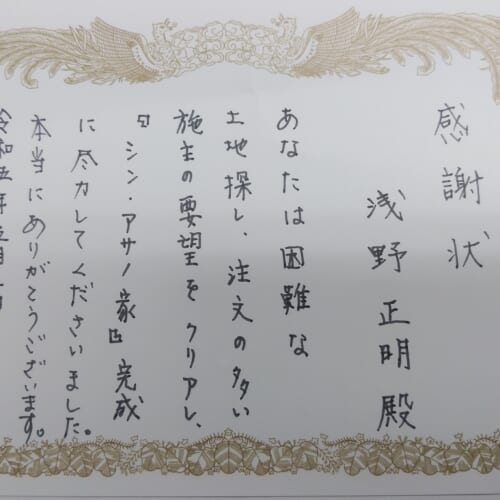 感謝状
浅野正明殿
あなたは困難な
土地探し、注文の多い
施主の要望をクリアし、
『シン・アサノ家』完成
に尽力してくださいました。
本当にありがとうございます。
令和五年